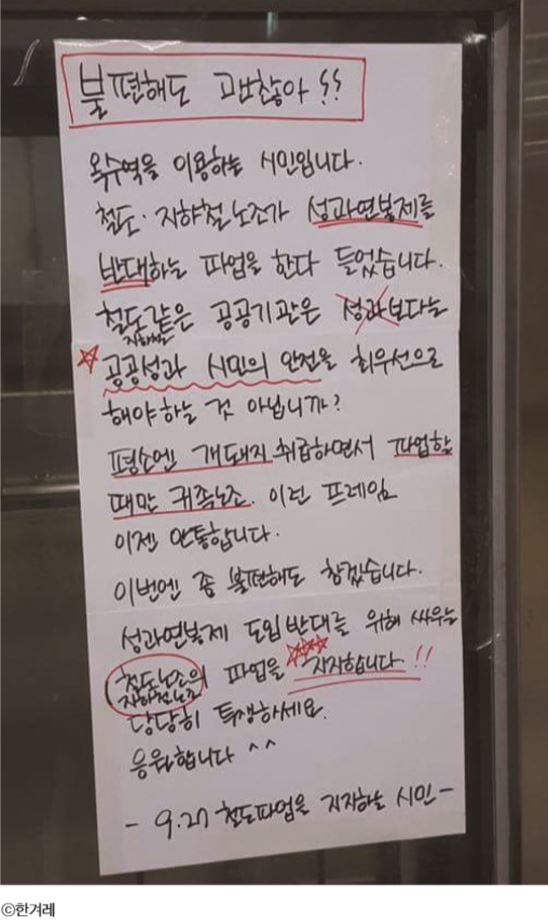 불편해도 괜찮아!!
옥수역을 이용하는 시민입니다.
철도·지하철노조가 성과연봉제를
반대하는 파업을 한다 들었습니다.
철도같은 공공기관은 성과보다는
지하철
☆ 공공성과 시민의 안전을 최우선으로
해야하는 것 아닙니까?
평소엔 개돼지 취급하면서 파업할
때만 귀족노조. 이런 프레임
이젠 안통합니다.
이번엔 좀 불편해도 참겠습니다.
성과연봉제 도입반대를 위해 싸우는
철도노조의 파업을 ☆☆☆지지합니다!!
지하철노조
당당히 투쟁하세요.
응원합니다 ^^
- 9.27 철도파업을 지지하는 시민 -
©한겨레